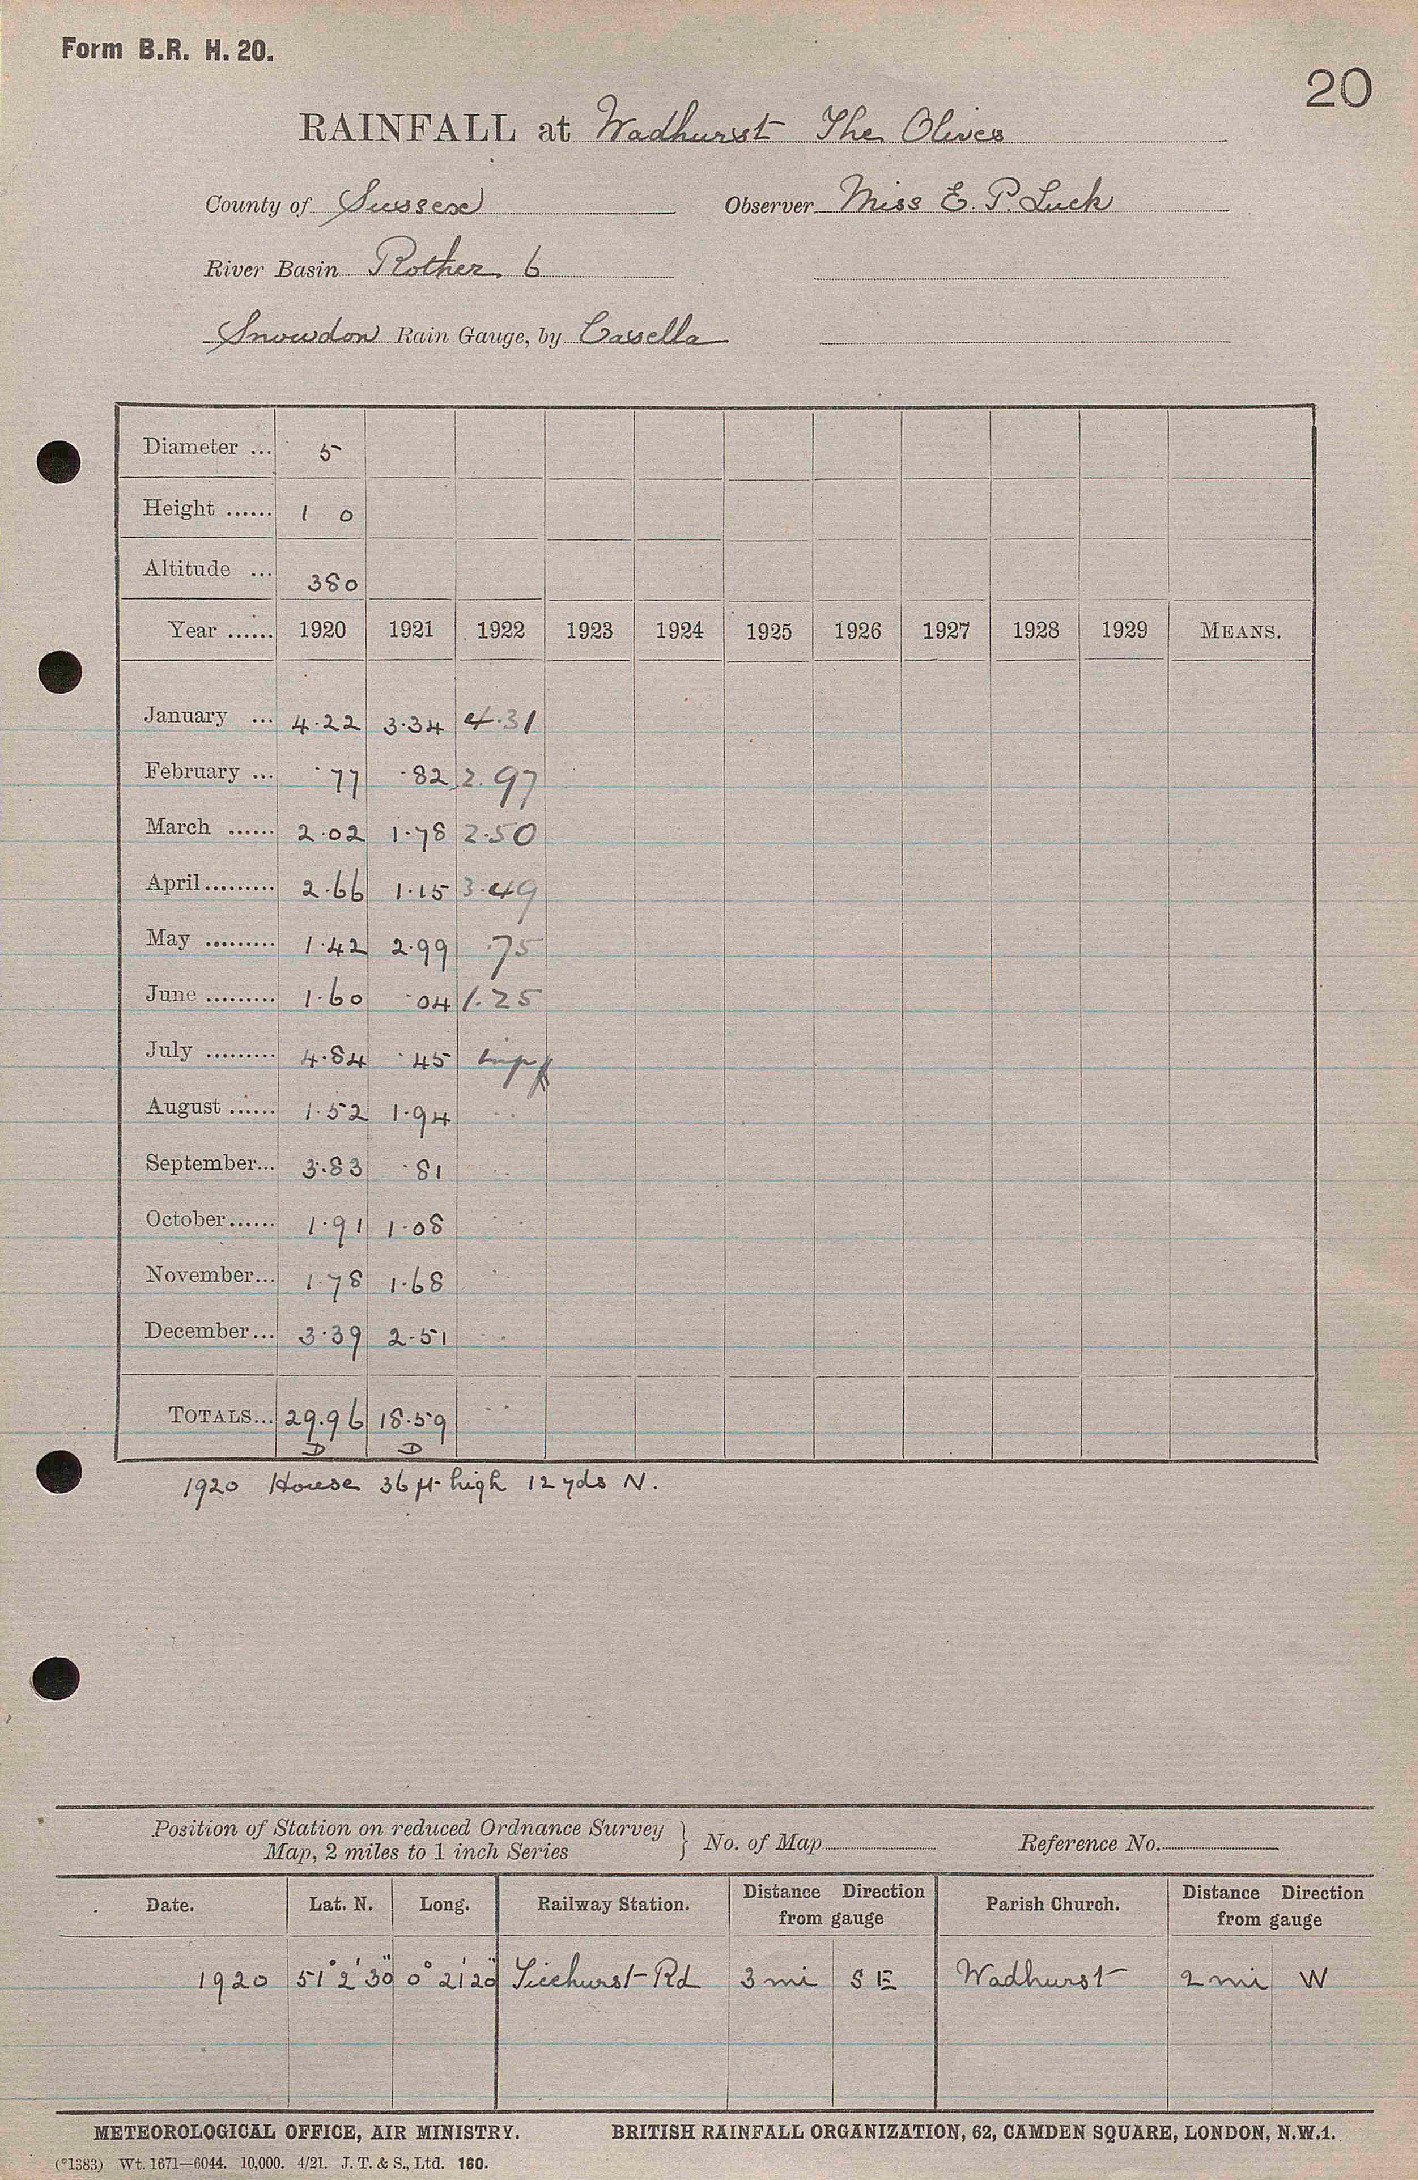 Form B.R. H. 20.
20
RAINFALL at Wadhurst The Olives
County of Sussex Observer Miss E. P. Luck
River Basin Rother 6
Snowdon Rain Gauge, by Casella
Diameter ... 5
Height ...... 1 0
Altitude ... 380
Year ...... 1920 1921 1922 1923 1924 1925 1926 1927 1928 1929 MEANS.
January ... 4.22 3.34 4.31
February ... .77 .82 2.97
March ...... 2.02 1.78 2.50
April ......... 2.66 1.15 3.49
May ......... 1.42 2.99 .75
June ......... 1.60 .04 1.25
July ......... 4.84 .45 impf
August ...... 1.52 1.94 ..
September... 3.83 .81 ..
October...... 1.91 1.08 ..
November... 1.78 1.68 ..
December... 3.39 2.51 ..
TOTALS... 29.96 18.59 ..
D D
1920 House 36 ft high 12 yds N.
Position of Station on reduced Ordnance Survey
Map, 2 miles to 1 inch Series } No. of Map Reference No.
Date. Lat. N. Long. Railway Station. Distance Direction from gauge Parish Church. Distance Direction from gauge
1920 51° 2' 30" 0° 21' 20" Ticehurst Rd 3 mi S E Wadhurst 2 mi W
METEOROLOGICAL OFFICE, AIR MINISTRY. BRITISH RAINFALL ORGANIZATION, 62, CAMDEN SQUARE, LONDON, N.W.1.
(*1383) Wt. 1671—6044. 10,000. 4/21. J. T. & S., Ltd. 160.